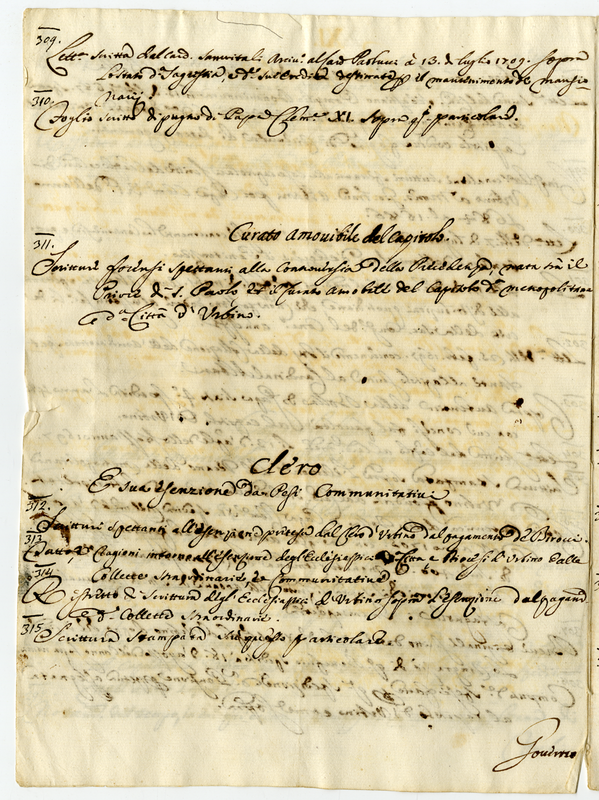 309.
Lett.ª scritta dal Card. Sanvitali Arciv.º al Sad Paolucci à 13. di luglio 1709. sopra
lo stato di Sagrestia, e sul credito destinato p il mantenimento de Mansio=
narij
310.
Foglio scritto di pugno di Papa Clem.e XI. sopra q.to particolare.
Curato amovibile del Capitolo
311.
Scritture forensi spettanti alla Controversia della Precedenza, nata trà il
Priore di S. Paolo, et il Curato amobile del Capitolo di Metropolitana
e d.ª Città d'Urbino.
Clero
E sua esenzione da Pesi Communitativi
312.
Scritture spettanti all'esenzione pretesa dal Clero d'Urbino dal pagamento de
313
Ragioni intorno all'esenzione degl'Ecclesiastici di Città e Diocesi d'Urbino dalle
Collette straordinarie, e Communitative
314
Ristretto di Scritture degl'Ecclesiastici d'Urbino sopra l'esenzione dal pagam.
di Collette straordinarie.
315
Scrittura stampata su questo particolare
Governo